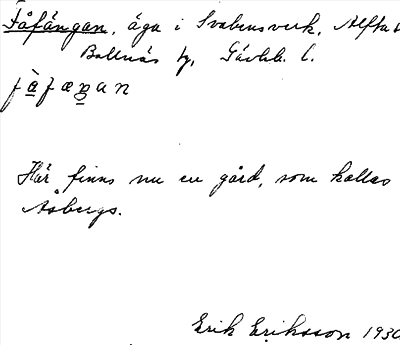 Fåfängan, äga i Svabensverk, Alfta
Bollnäs tg, Gävleb. l.
fàfæŋan
Här finns nu en gård, som kallas
Åsbergs.
Erik Eriksson 1930